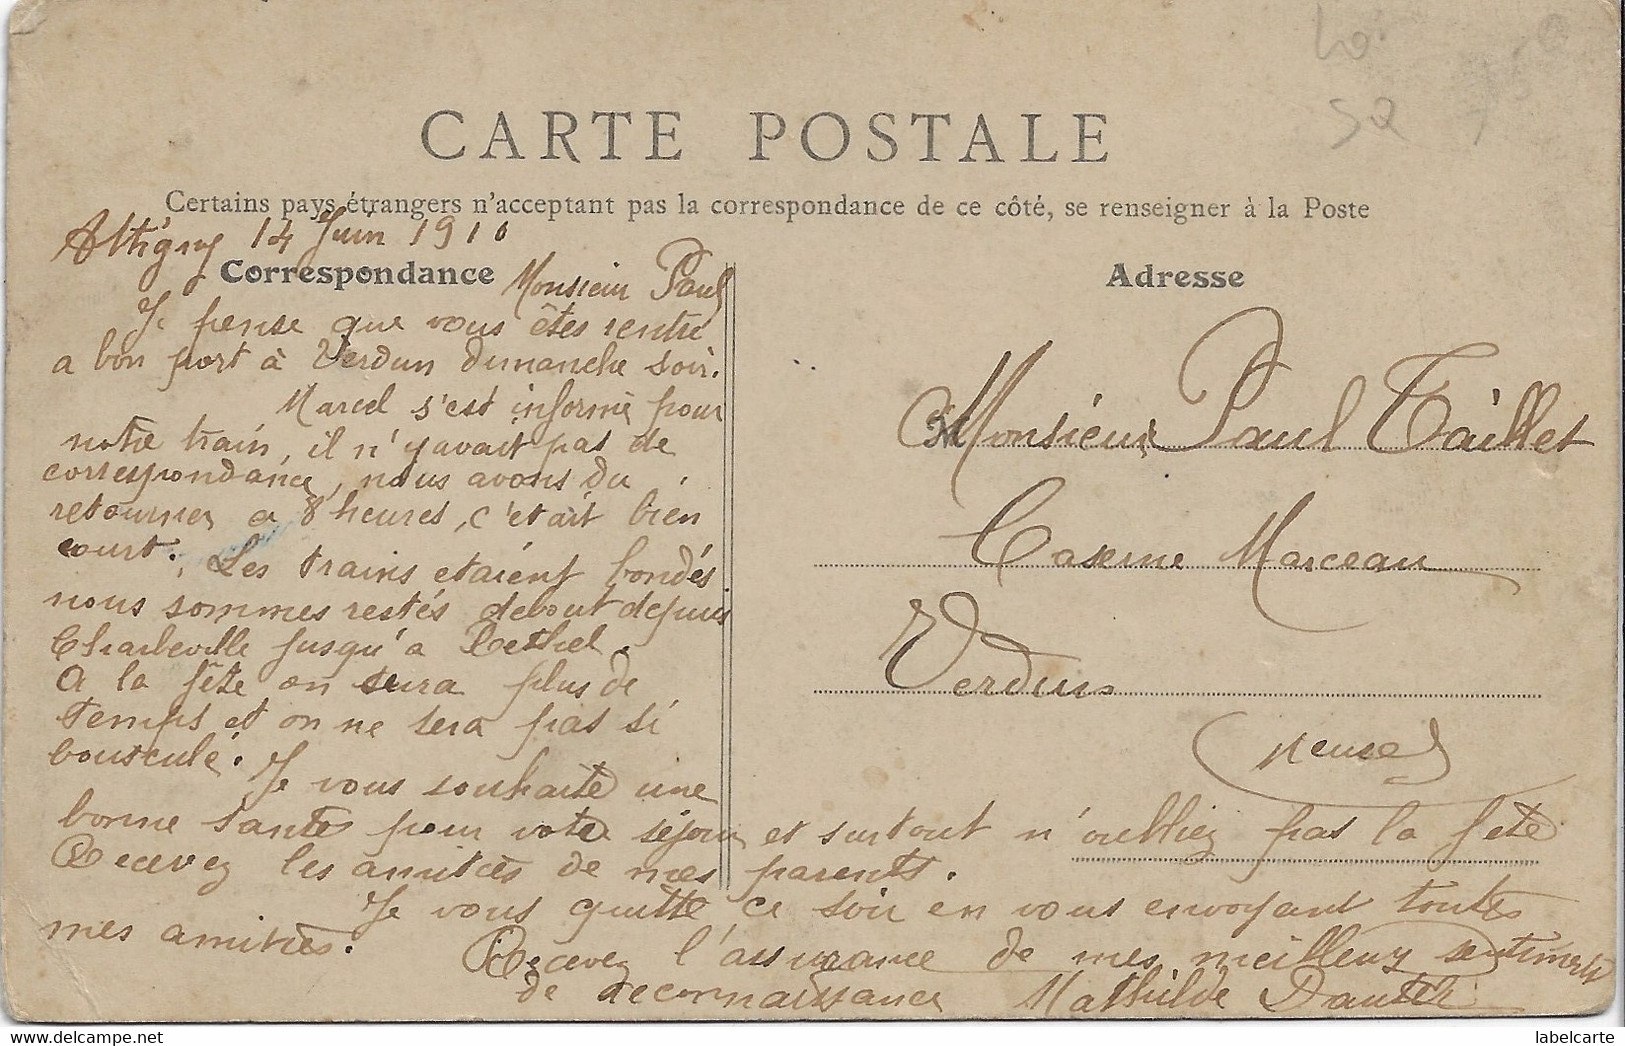 40
50
CARTE POSTALE
Certains pays étrangers n'acceptent pas la correspondance de ce côté, se renseigner à la Poste
Attigny 14 Juin 1910
Correspondance
Adresse
Monsieur Paul
Je pense que vous êtes rentré
a bon port à Verdun dimanche soir.
Marcel s'est informé pour
notre train, il n'yavait pas de
correspondance, nous avons du
retourner a 8 heures, c'etait bien
court. Les trains etaient bondés
nous sommes restés debout depuis
Charleville jusqu'a Rethel.
A la fête on aura plus de
temps et on ne sera pas si
bousculé. Je vous souhaite une
bonne santé pour votre séjour et surtout n'oubliez pas la fete
Recevez les amitiés de mes parents.
Je vous quitte ce soir en vous envoyant toutes
mes amitiés.
Recevez l'assurance de mes meilleurs sentiments
de reconnaissance Mathilde
Monsieur Paul Taillet
Caserne Marceau
Verdun
Meuse
labelcarte